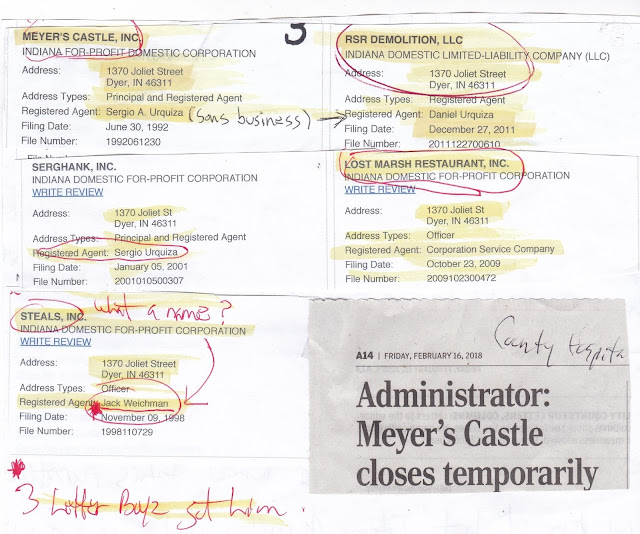 3
MEYER'S CASTLE, INC.
INDIANA FOR-PROFIT DOMESTIC CORPORATION
Address: 1370 Joliet Street
Dyer, IN 46311
Address Types: Principal and Registered Agent
Registered Agent: Sergio A. Urquiza (Sons business) →
Filing Date: June 30, 1992
File Number: 1992061230
RSR DEMOLITION, LLC
INDIANA DOMESTIC LIMITED-LIABILITY COMPANY (LLC)
Address: 1370 Joliet Street
Dyer, IN 46311
Address Types: Registered Agent
Registered Agent: Daniel Urquiza
Filing Date: December 27, 2011
File Number: 2011122700610
SERGHANK, INC.
INDIANA DOMESTIC FOR-PROFIT CORPORATION
WRITE REVIEW
Address: 1370 Joliet St
Dyer, IN 46311
Address Types: Principal and Registered Agent
Registered Agent: Sergio Urquiza
Filing Date: January 05, 2001
File Number: 2001010500307
LOST MARSH RESTAURANT, INC.
INDIANA DOMESTIC FOR-PROFIT CORPORATION
WRITE REVIEW
Address: 1370 Joliet St
Dyer, IN 46311
Address Types: Officer
Registered Agent: Corporation Service Company
Filing Date: October 23, 2009
File Number: 2009102300472
What a name?
STEALS, INC.
INDIANA DOMESTIC FOR-PROFIT CORPORATION
WRITE REVIEW
Address: 1370 Joliet Street
Dyer, IN 46311
Address Types: Officer
Registered Agent: Jack Weichman
Filing Date: November 09, 1998
File Number: 1998110729
3 Letter Boyz got him
County
A14 | FRIDAY, FEBRUARY 16, 2018
Administrator:
Meyer's Castle
closes temporarily